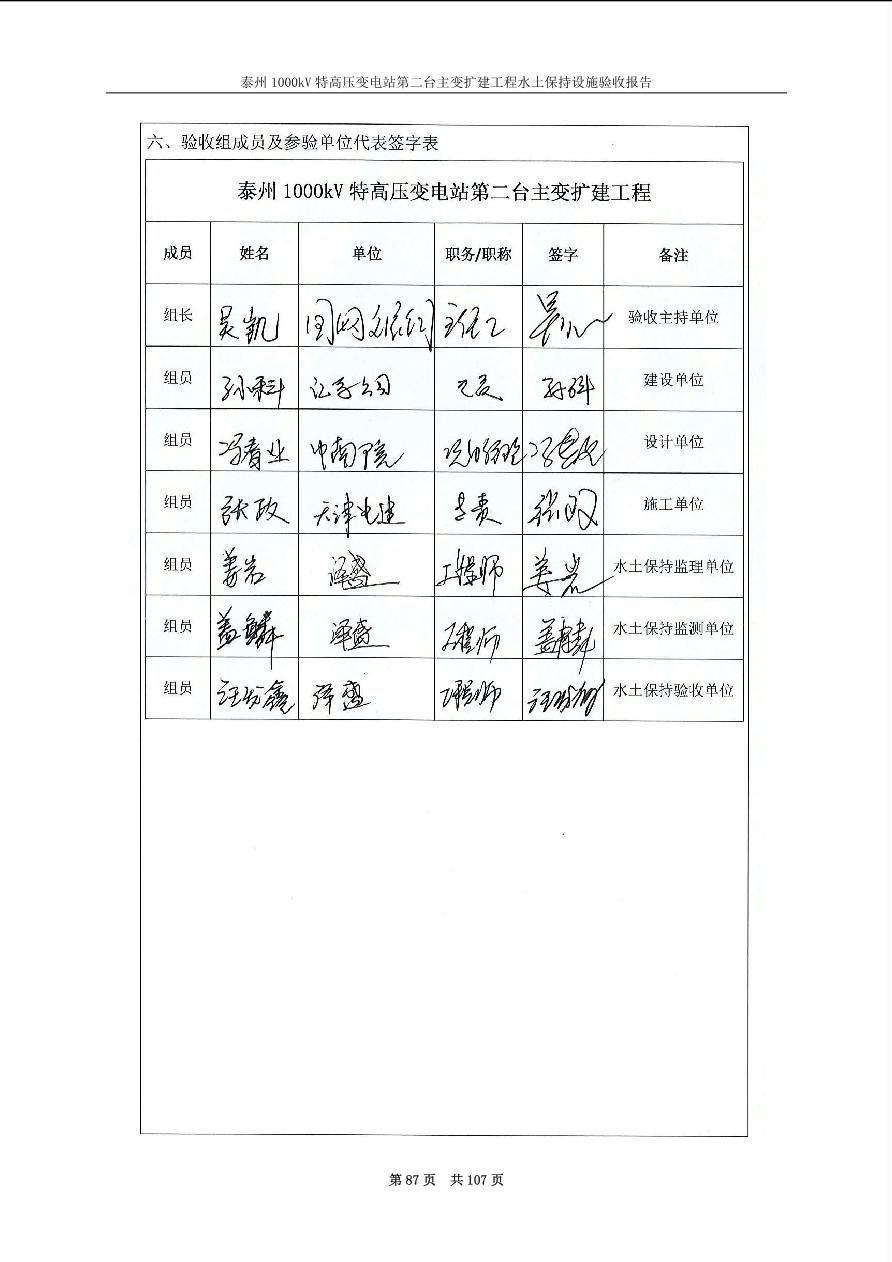 泰州 1000kV 特高压变电站第二台主变扩建工程水土保持设施验收报告
六、验收组成员及参验单位代表签字表
泰州 1000kV 特高压变电站第二台主变扩建工程
成员 姓名 单位 职务/职称 签字 备注
组长 吴凯 国网 吴 验收主持单位
组员 孙科 公司 孙科 建设单位
组员 冯春业 中南院 冯春业 设计单位
组员 张政 天津电建 张政 施工单位
组员 姜岩 泽盛 工程师 姜岩 水土保持监理单位
组员 孟麟 泽盛 工程师 水土保持监测单位
组员 泽盛 工程师 水土保持验收单位
第 87 页 共 107 页